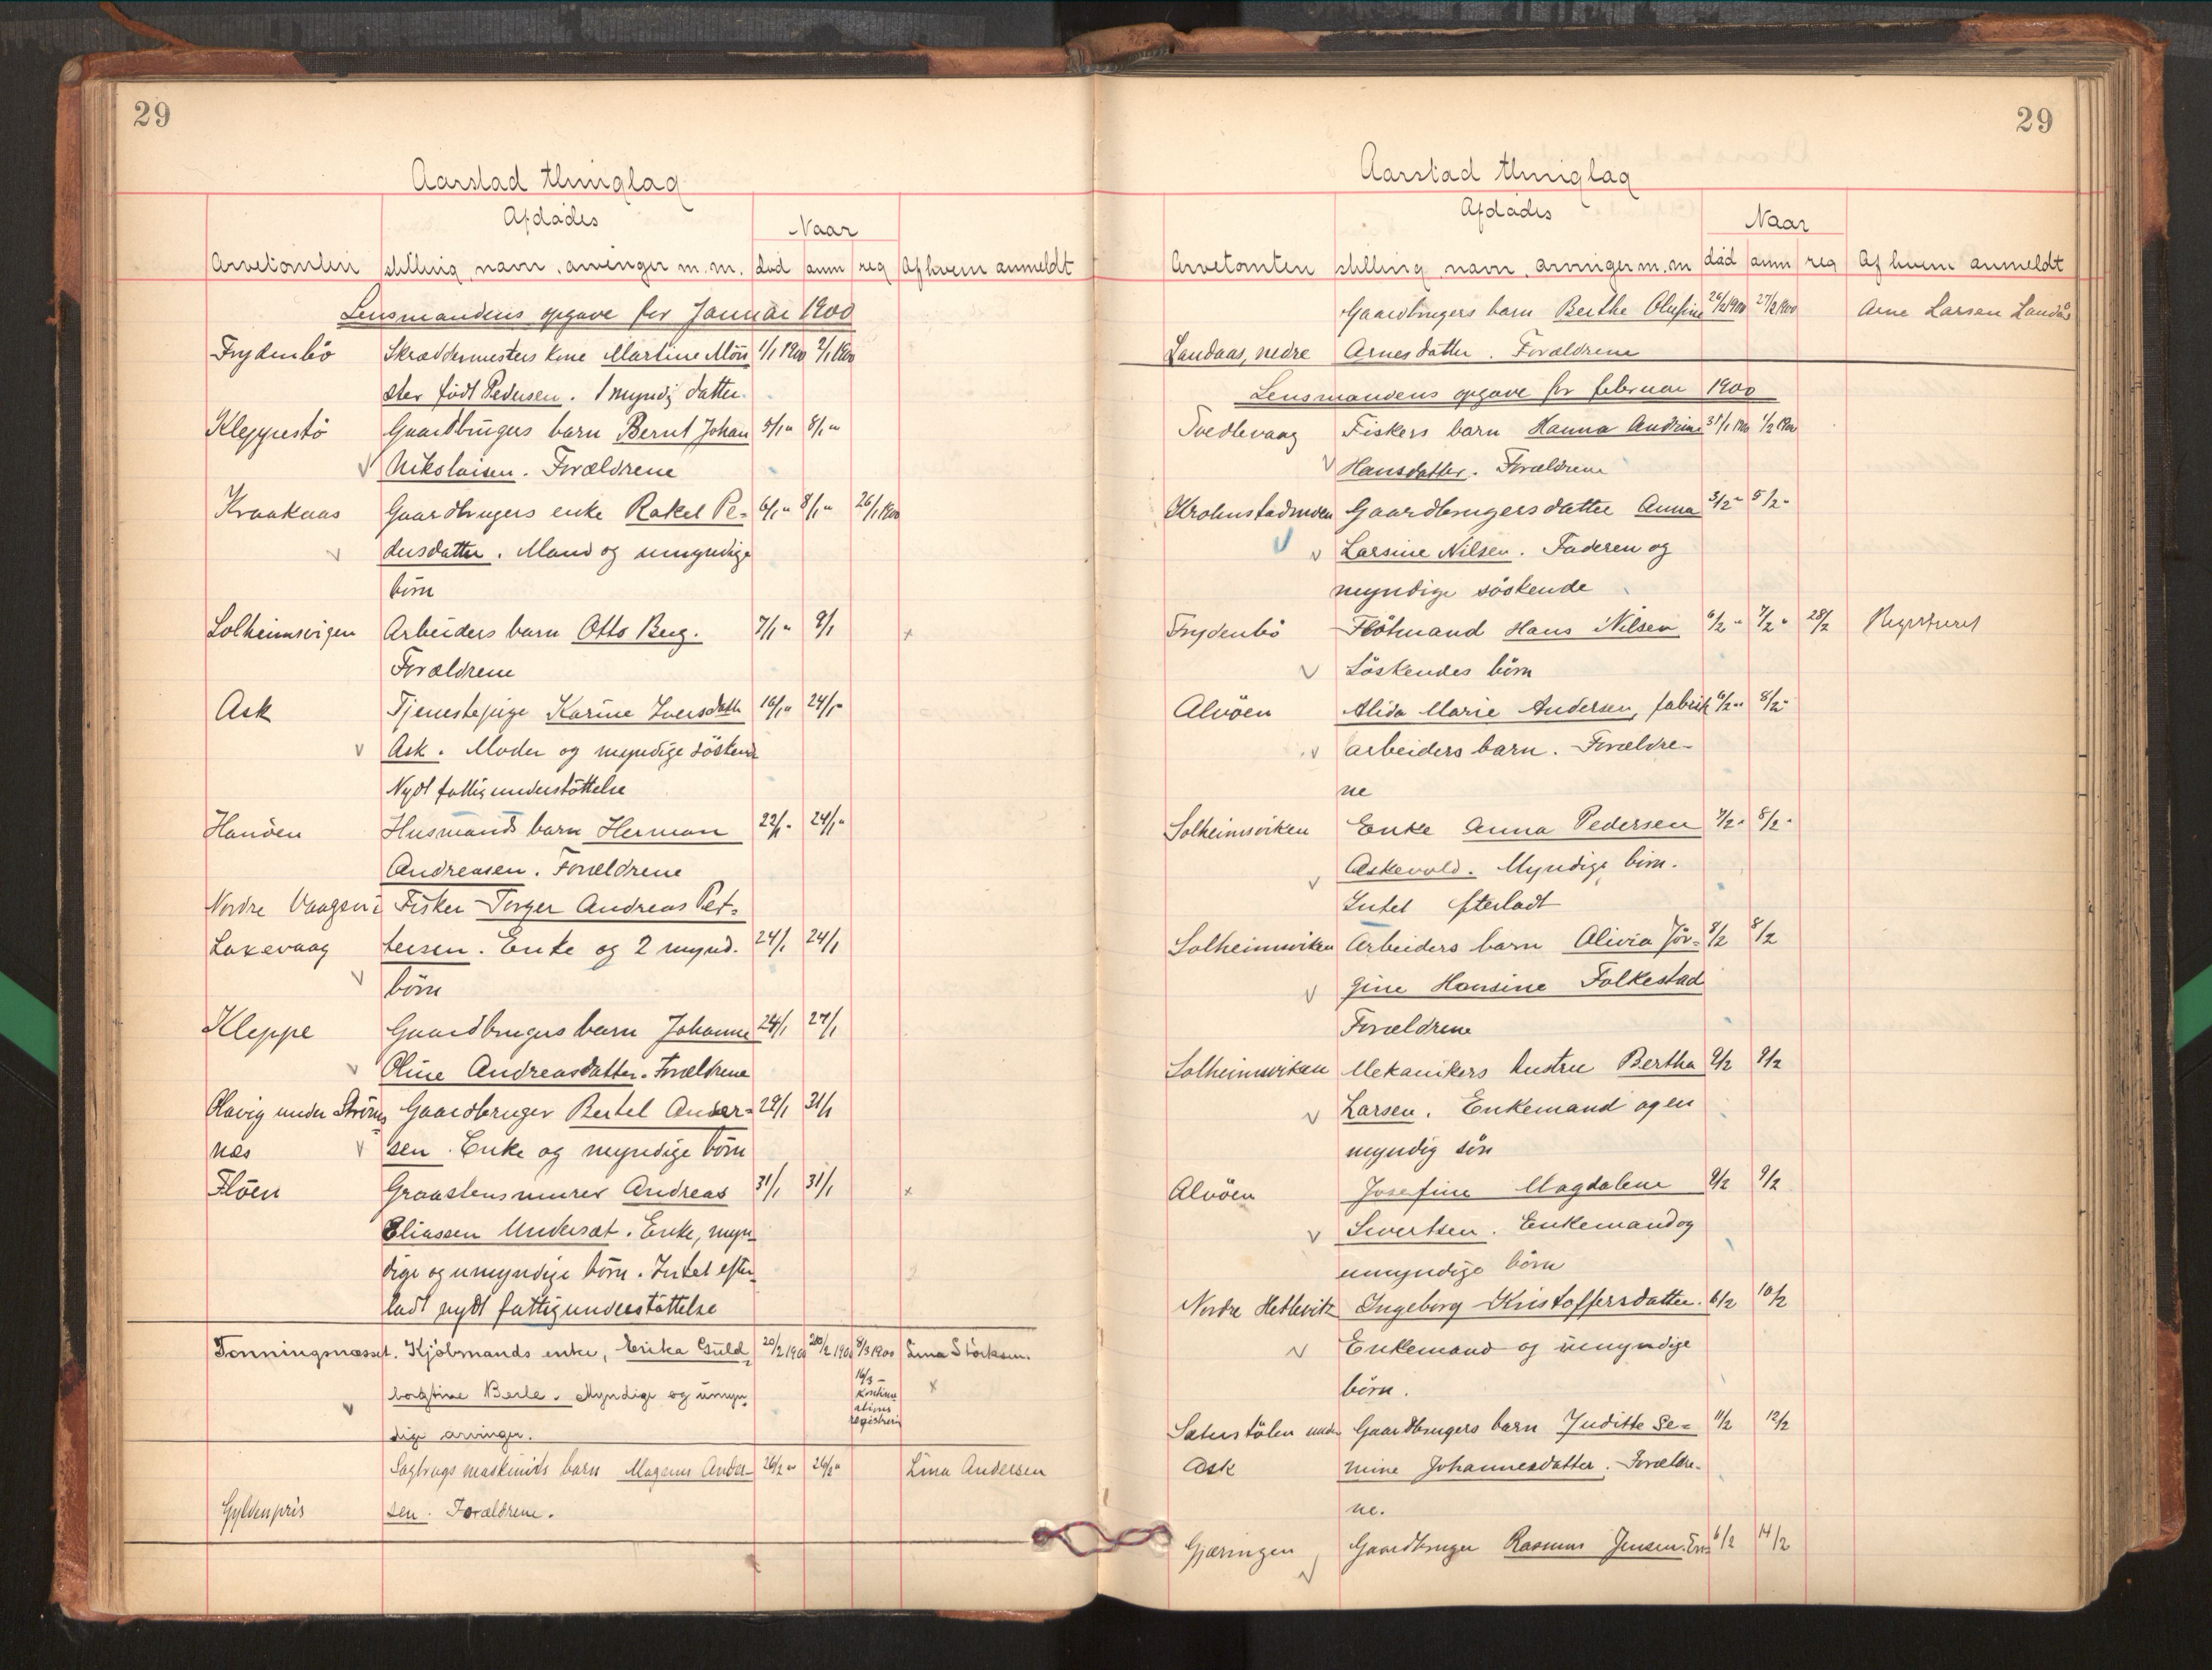 29
Aarstad thinglag
Afdødes
Naar
Arvetomten stilling, navn, arvinger m.m. død anm reg Af hvem anmeldt
Lensmandens opgave for Januar 1900
Frydenbö Skræddermesters kone Martine Mön 1/1 1900 2/1 1900
ster født Pedersen. 1 myndig datter.
Kleppestö Gaardbrugers barn Bernt Johan 5/1 " 8/1 "
v Nikolaisen. Forældrene
Kraakaas Gaardbrugers enke Rakel Pe- 6/1 " 8/1 " 26/1 1900
v dersdatter. Mand og umyndige
börn
Solheimsvigen Arbeiders barn Otto Berg. 7/1 " 9/1 x
Forældrene
Ask Tjenestepige Karine Iversdatter 16/1 " 24/1 "
v Ask. Moder og myndige söskend
Nydt fattigunderstöttelse
Hanöen Husmands barn Herman 22/1 " 24/1 "
Andreasen. Forældrene
Nordre Vaagen i Fisker Torger Andreas Pet-
Laxevaag tersen. Enke og 2 mynd. 24/1 24/1
v börn
Kleppe Gaardbrugers barn Johanne 24/1 27/1
v Oline Andreasdatter. Forældrene
Olavig under Ströms Gaardbruger Bertel Ander- 29/1 31/1
næs v sen. Enke og myndige börn
Flöen Graastensmurer Andreas 31/1 31/1 x
Eliassen Undersæt. Enke, myn-
dige og umyndige börn. Intet efter-
ladt nydt fattigunderstöttelse
Tonningsnæsset. Kjöbmands enke, Erika Guld- 20/2 1900 20/2 1900 8/3 1900 Lina Störksen.
16/3 -
v borgine Berle. Myndige og umyn- kontinu x
ations
registrering
dige arvinger.
Sagbrugs maskinists barn Magnus Ander- 26/2 " 26/2 " Lina Andersen
Gyldenpris sen. Forældrene.
29
Aarstad thinglag
Afdødes
Naar
Arvetomten stilling, navn, arvinger m.m død anm reg Af hvem anmeldt
Gaardbrugers barn Berthe Olufine 26/2 1900 27/2 1900 Arne Larsen Landås
Landaas, nedre Arnesdatter. Forældrene
Lensmandens opgave for februar 1900
Tvedtevaag Fiskers barn Hanna Andrine 31/1 1900 1/2 1900
v Hansdatter. Forældrene
Krohnstadmoen Gaardbrugersdatter Anna 3/2 " 5/2 "
v v Larsine Nilsen. Faderen og
myndige söskende
Frydenbö Flötmand Hans Nilsen 6/2 " 7/2 " 28/2 Registreret
v Söskendes börn
Alvöen Alida Marie Andersen, fabrik 6/2 " 8/2 "
v arbeiders barn. Forældre-
ne
Solheimsviken Enke Anna Pedersen 7/2 " 8/2 "
v Askevold. Myndige börn.
Intet efterladt
Solheimsviken Arbeiders barn Alivia Jör- 8/2 8/2
v gine Hansine Folkestad
Forældrene
Solheimsviken Mekanikers hustru Bertha 9/2 9/2
v Larsen. Enkemand og en
myndig sön
Alvöen Josefine Magdalene 9/2 9/2
v Sivertsen. Enkemand og
umyndige börn
Nordre Hetlevik Ingeborg Kristoffersdatter. 6/2 10/2
v Enkemand og umyndige
börn.
Sæterstölen under Gaardbrugers barn Juditte Se- 11/2 12/2
Ask mine Johannesdatter. Forældre-
ne.
Gjæringen Gaardbruger Rasmus Jensen. 6/2 14/2
v